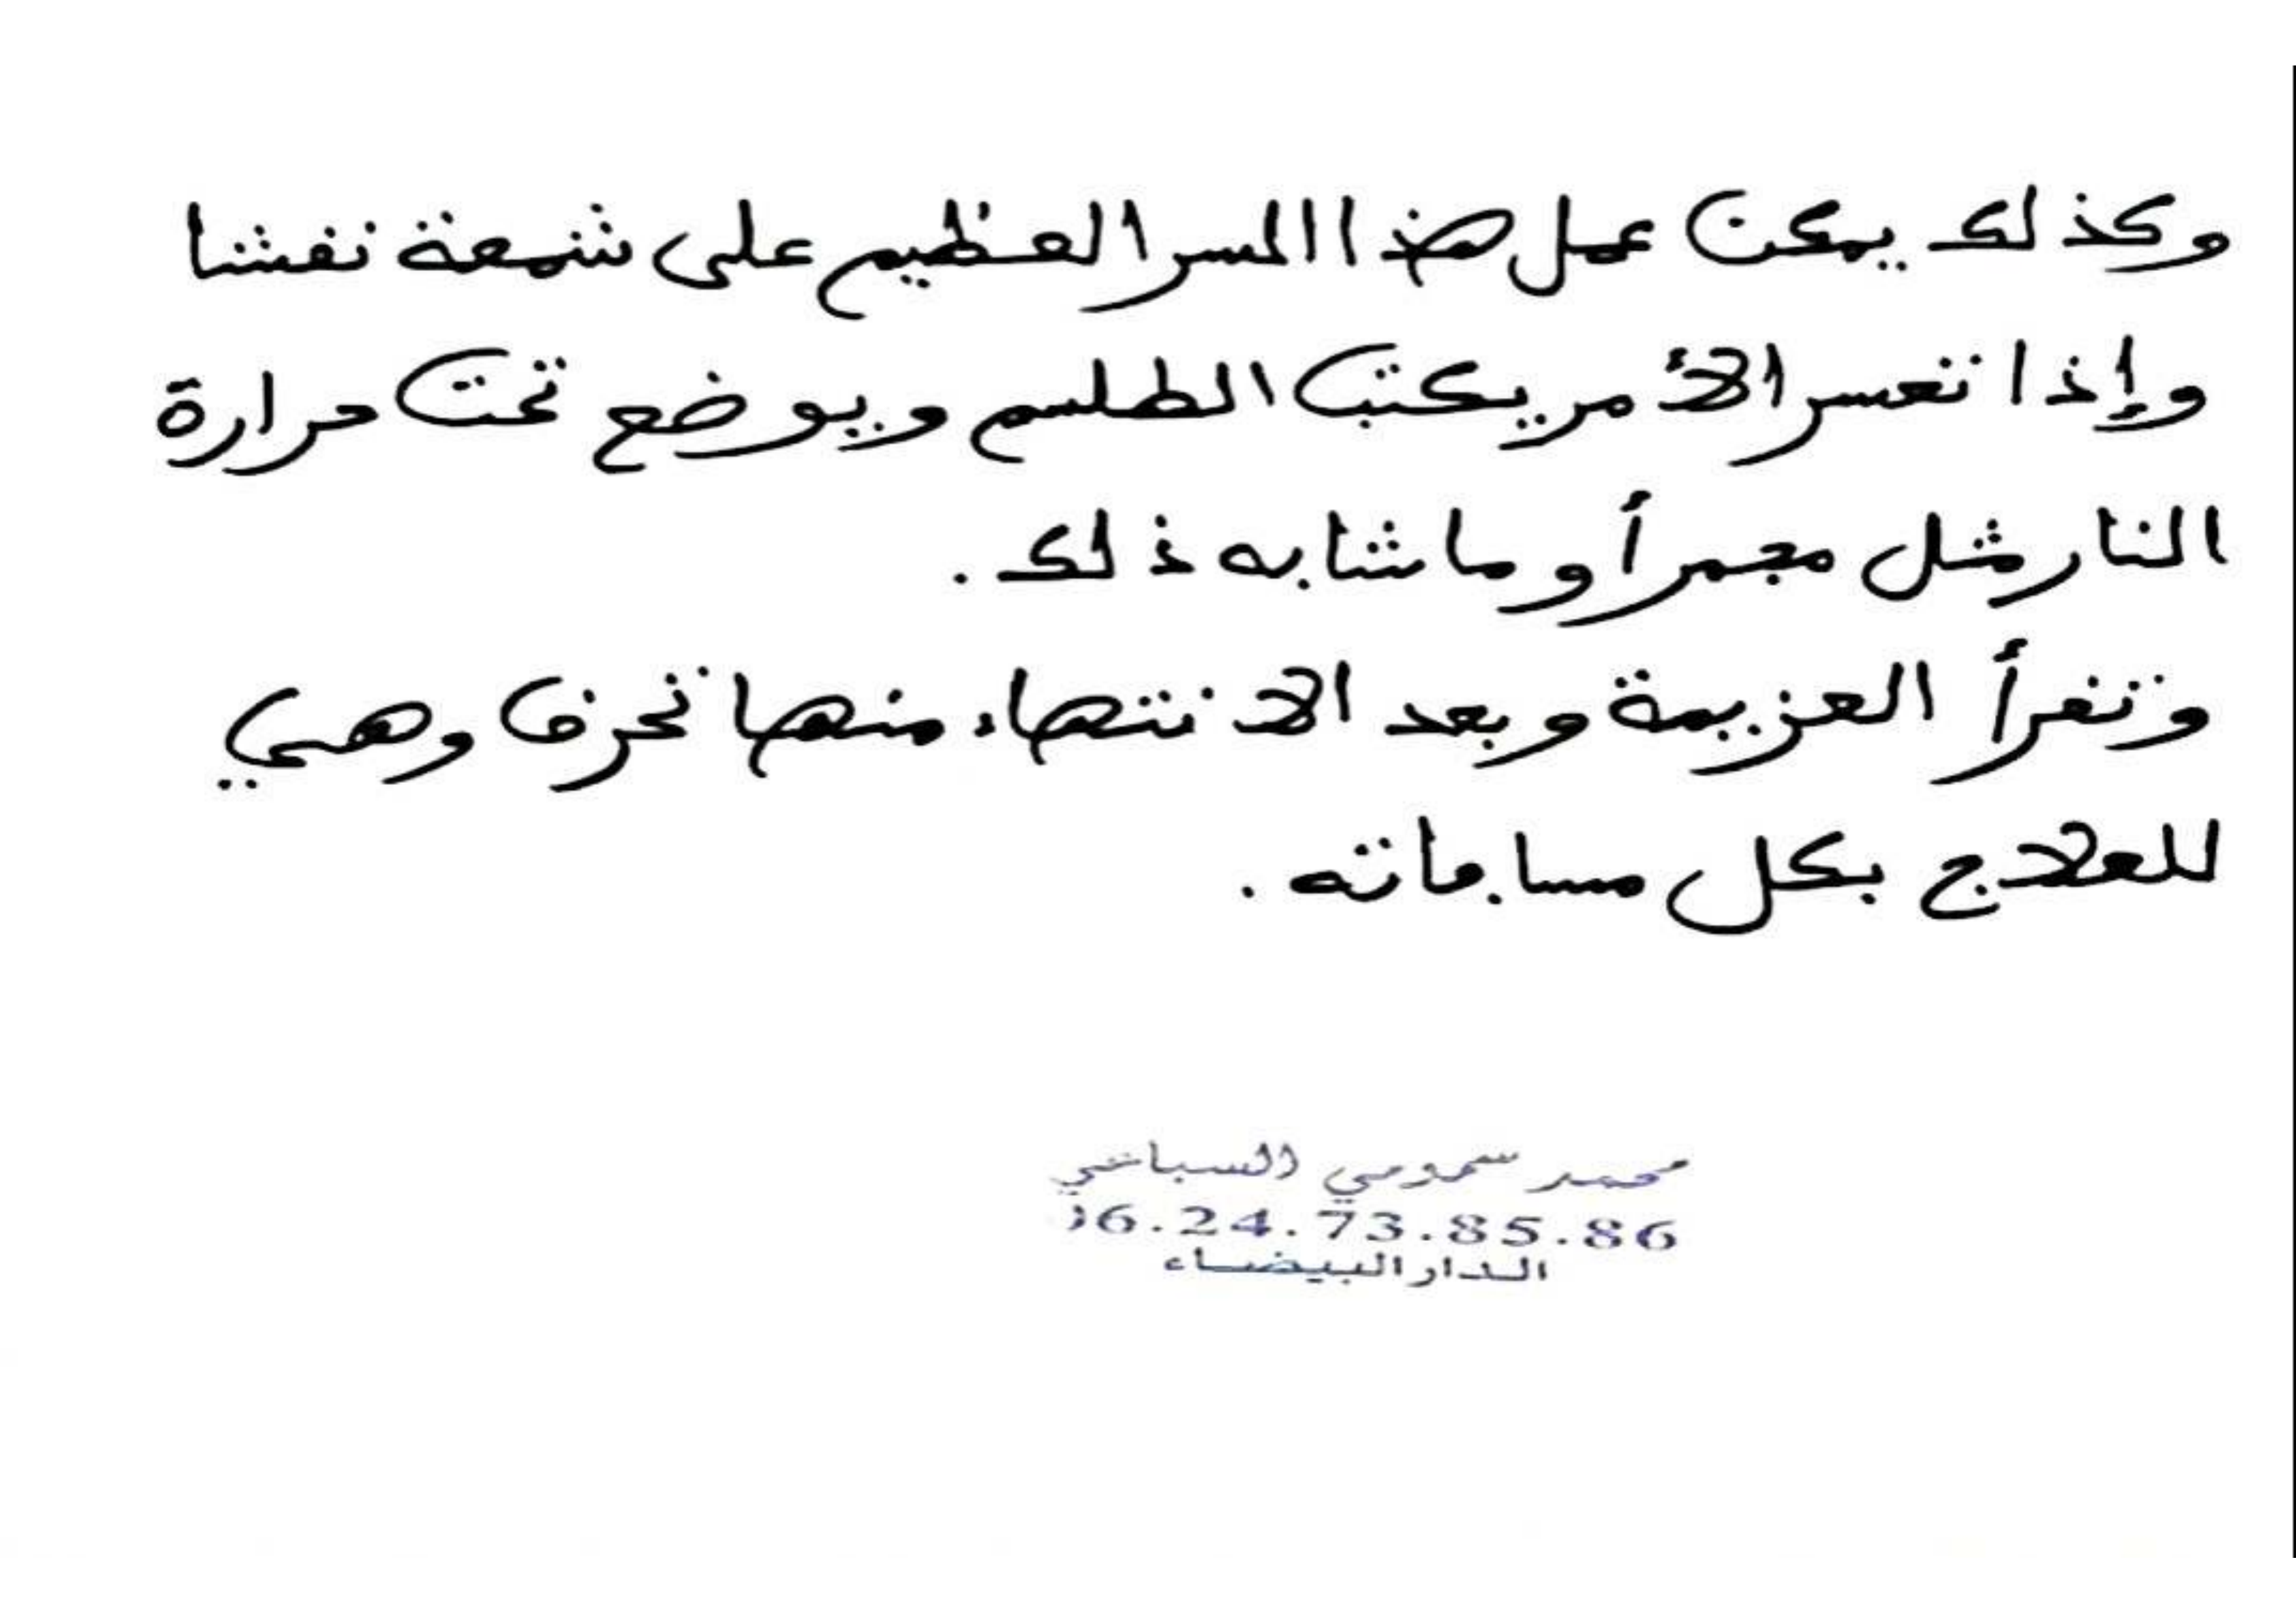 وكذلك يمكن عمل هذا السر العظيم على شمعة نقشا
وإذا تعسر الأمر يكتب الطلسم ويوضع تحت حرارة
النار مثل مجمر أو ما شابه ذلك .
وتقرأ العزيمة وبعد الانتهاء منها تحرق وهي
للعلاج بكل مسافاته .
محمد سمومي السباعي
06.24.73.85.86
الدار البيضاء